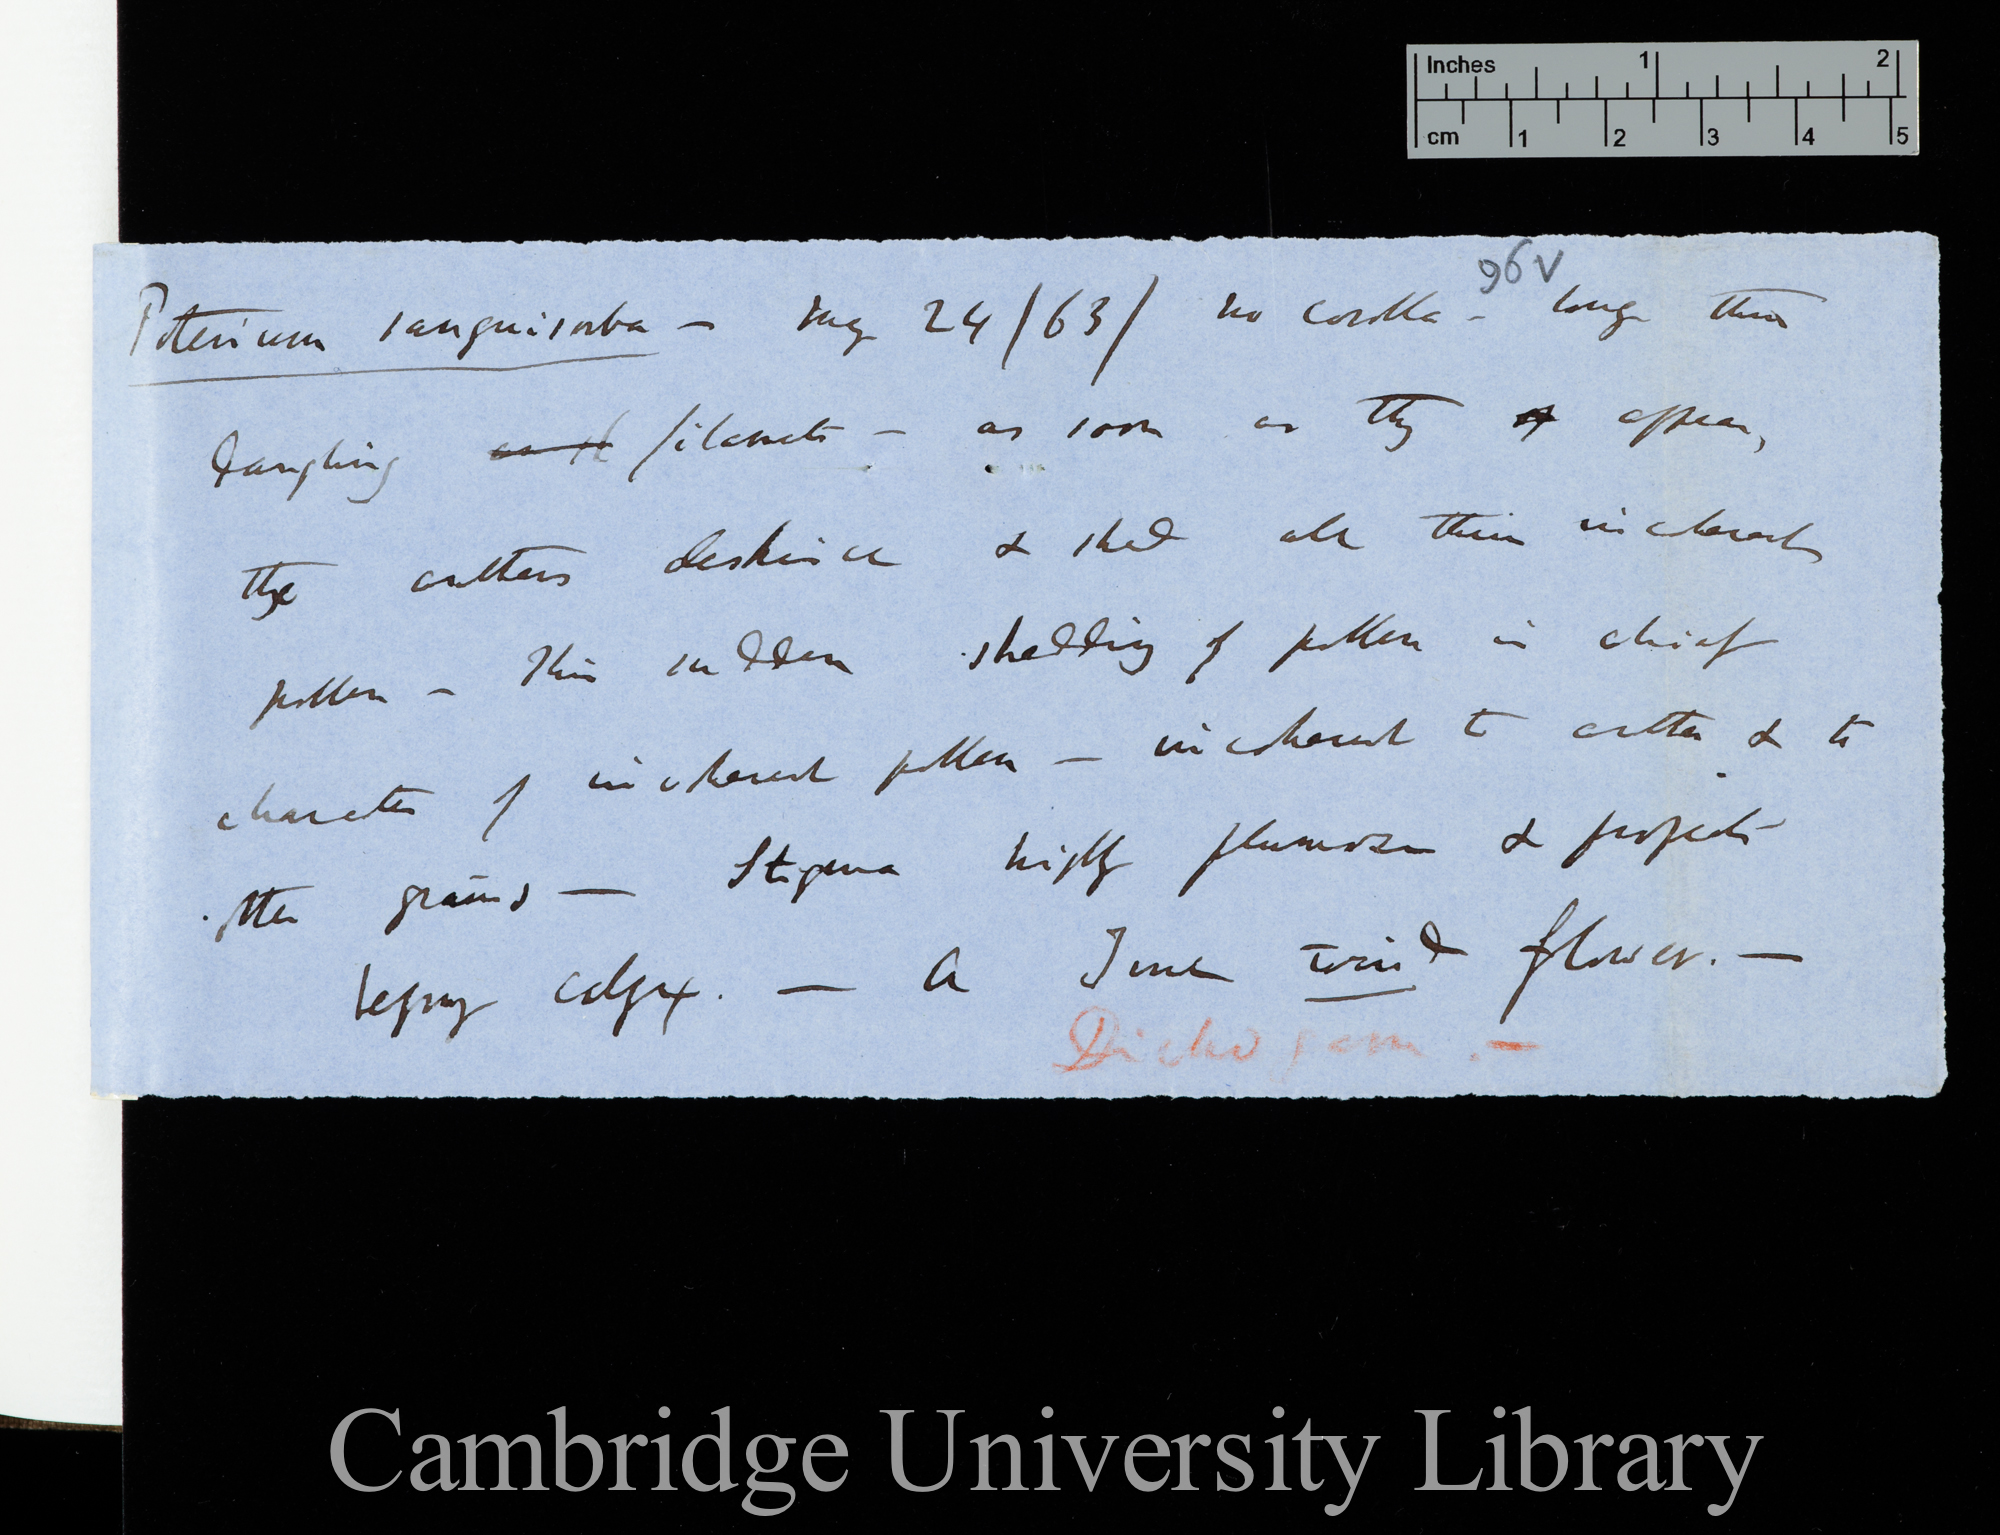 Inches 1 2
cm 1 2 3 4 5
96v
Poterium sanguisorba — May 24/63/ no corolla — long thin
dangling filaments — as soon as they appear,
the anthers deshisce & shed all their incoherent
pollen — This sudden shedding of pollen is chief
character of incoherent pollen — incoherent to anther & to
other grains — Stigma highly plumose & projects
beyond calyx. — A true wind flower. —
Dichogam. —
Cambridge University Library